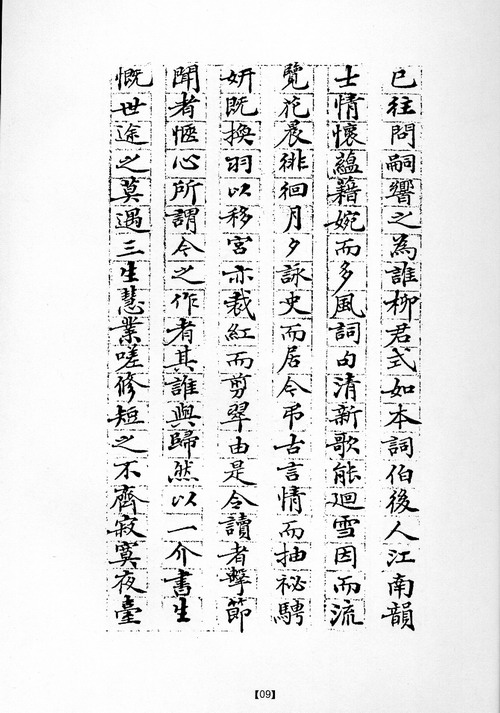 已往問嗣響之為誰柳君式如本詞伯後人江南韻
士情懷蘊藉婉而多風詞句清新歌能迴雪因而流
覽花晨徘徊月夕詠史而居今弔古言情而抽祕騁
妍既換羽以移宮亦裁紅而剪翠由是令讀者擊節
聞者愜心所謂今之作者其誰與歸然以一介書生
慨世途之莫遇三生慧業嗟修短之不齊寂寞夜臺
【09】